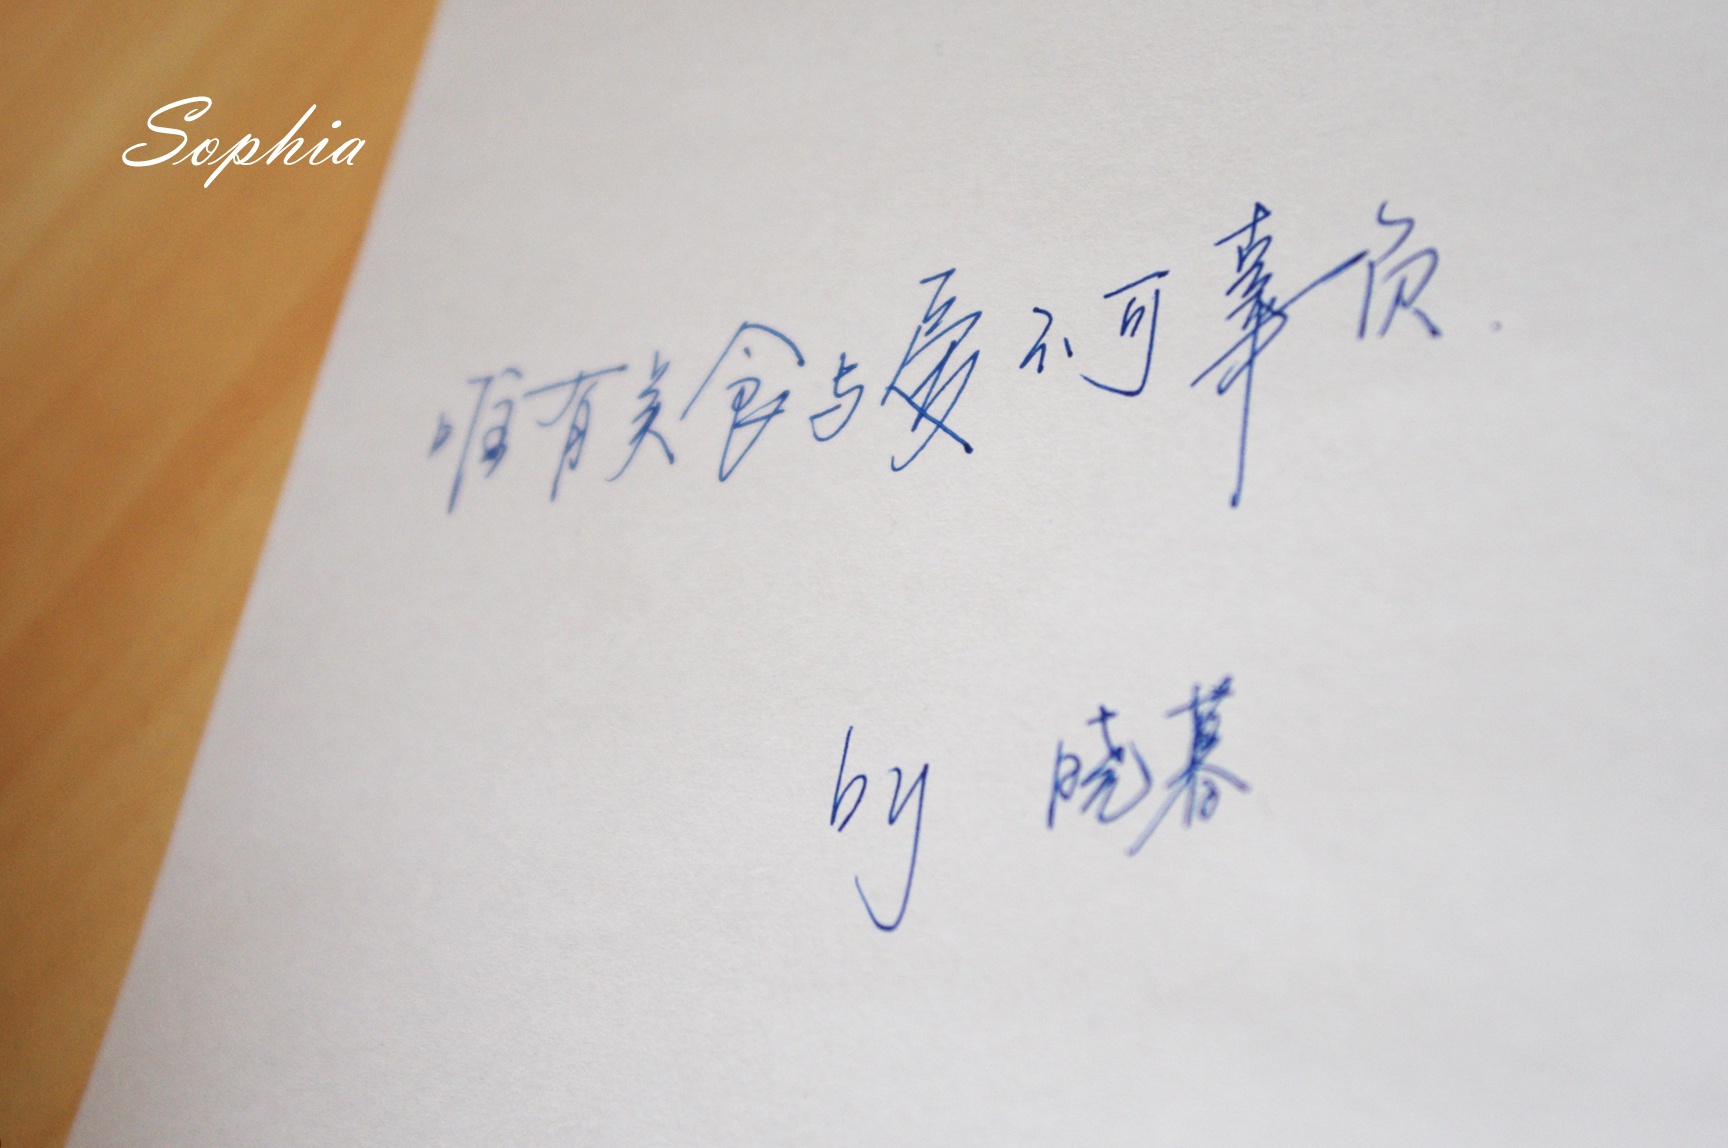 Sophia
唯有美食与爱不可辜负.
by 晓暮